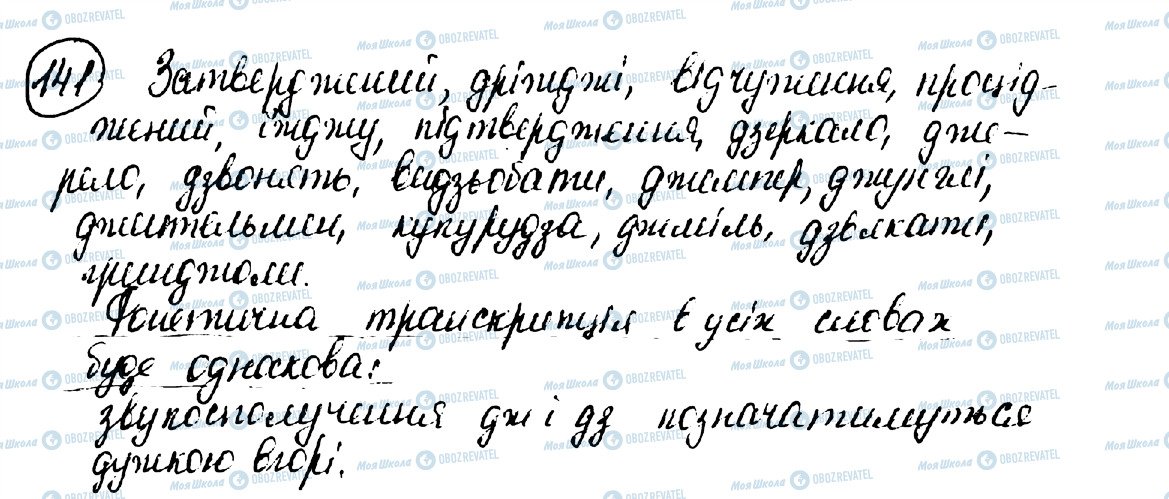 141 Затверджений, дріжджі, відчуження, процід-
жений, їжджу, підтвердження, дзеркало, дже-
рело, дзвонять, видзьобати, джемпер, джунглі,
джентельмен, кукурудза, джміль, дзвякати,
гринджоли.
Фонетична транскрипція в усіх словах
буде однакова:
звукосполучення дж і дз позначатимуться
дужкою вгорі.